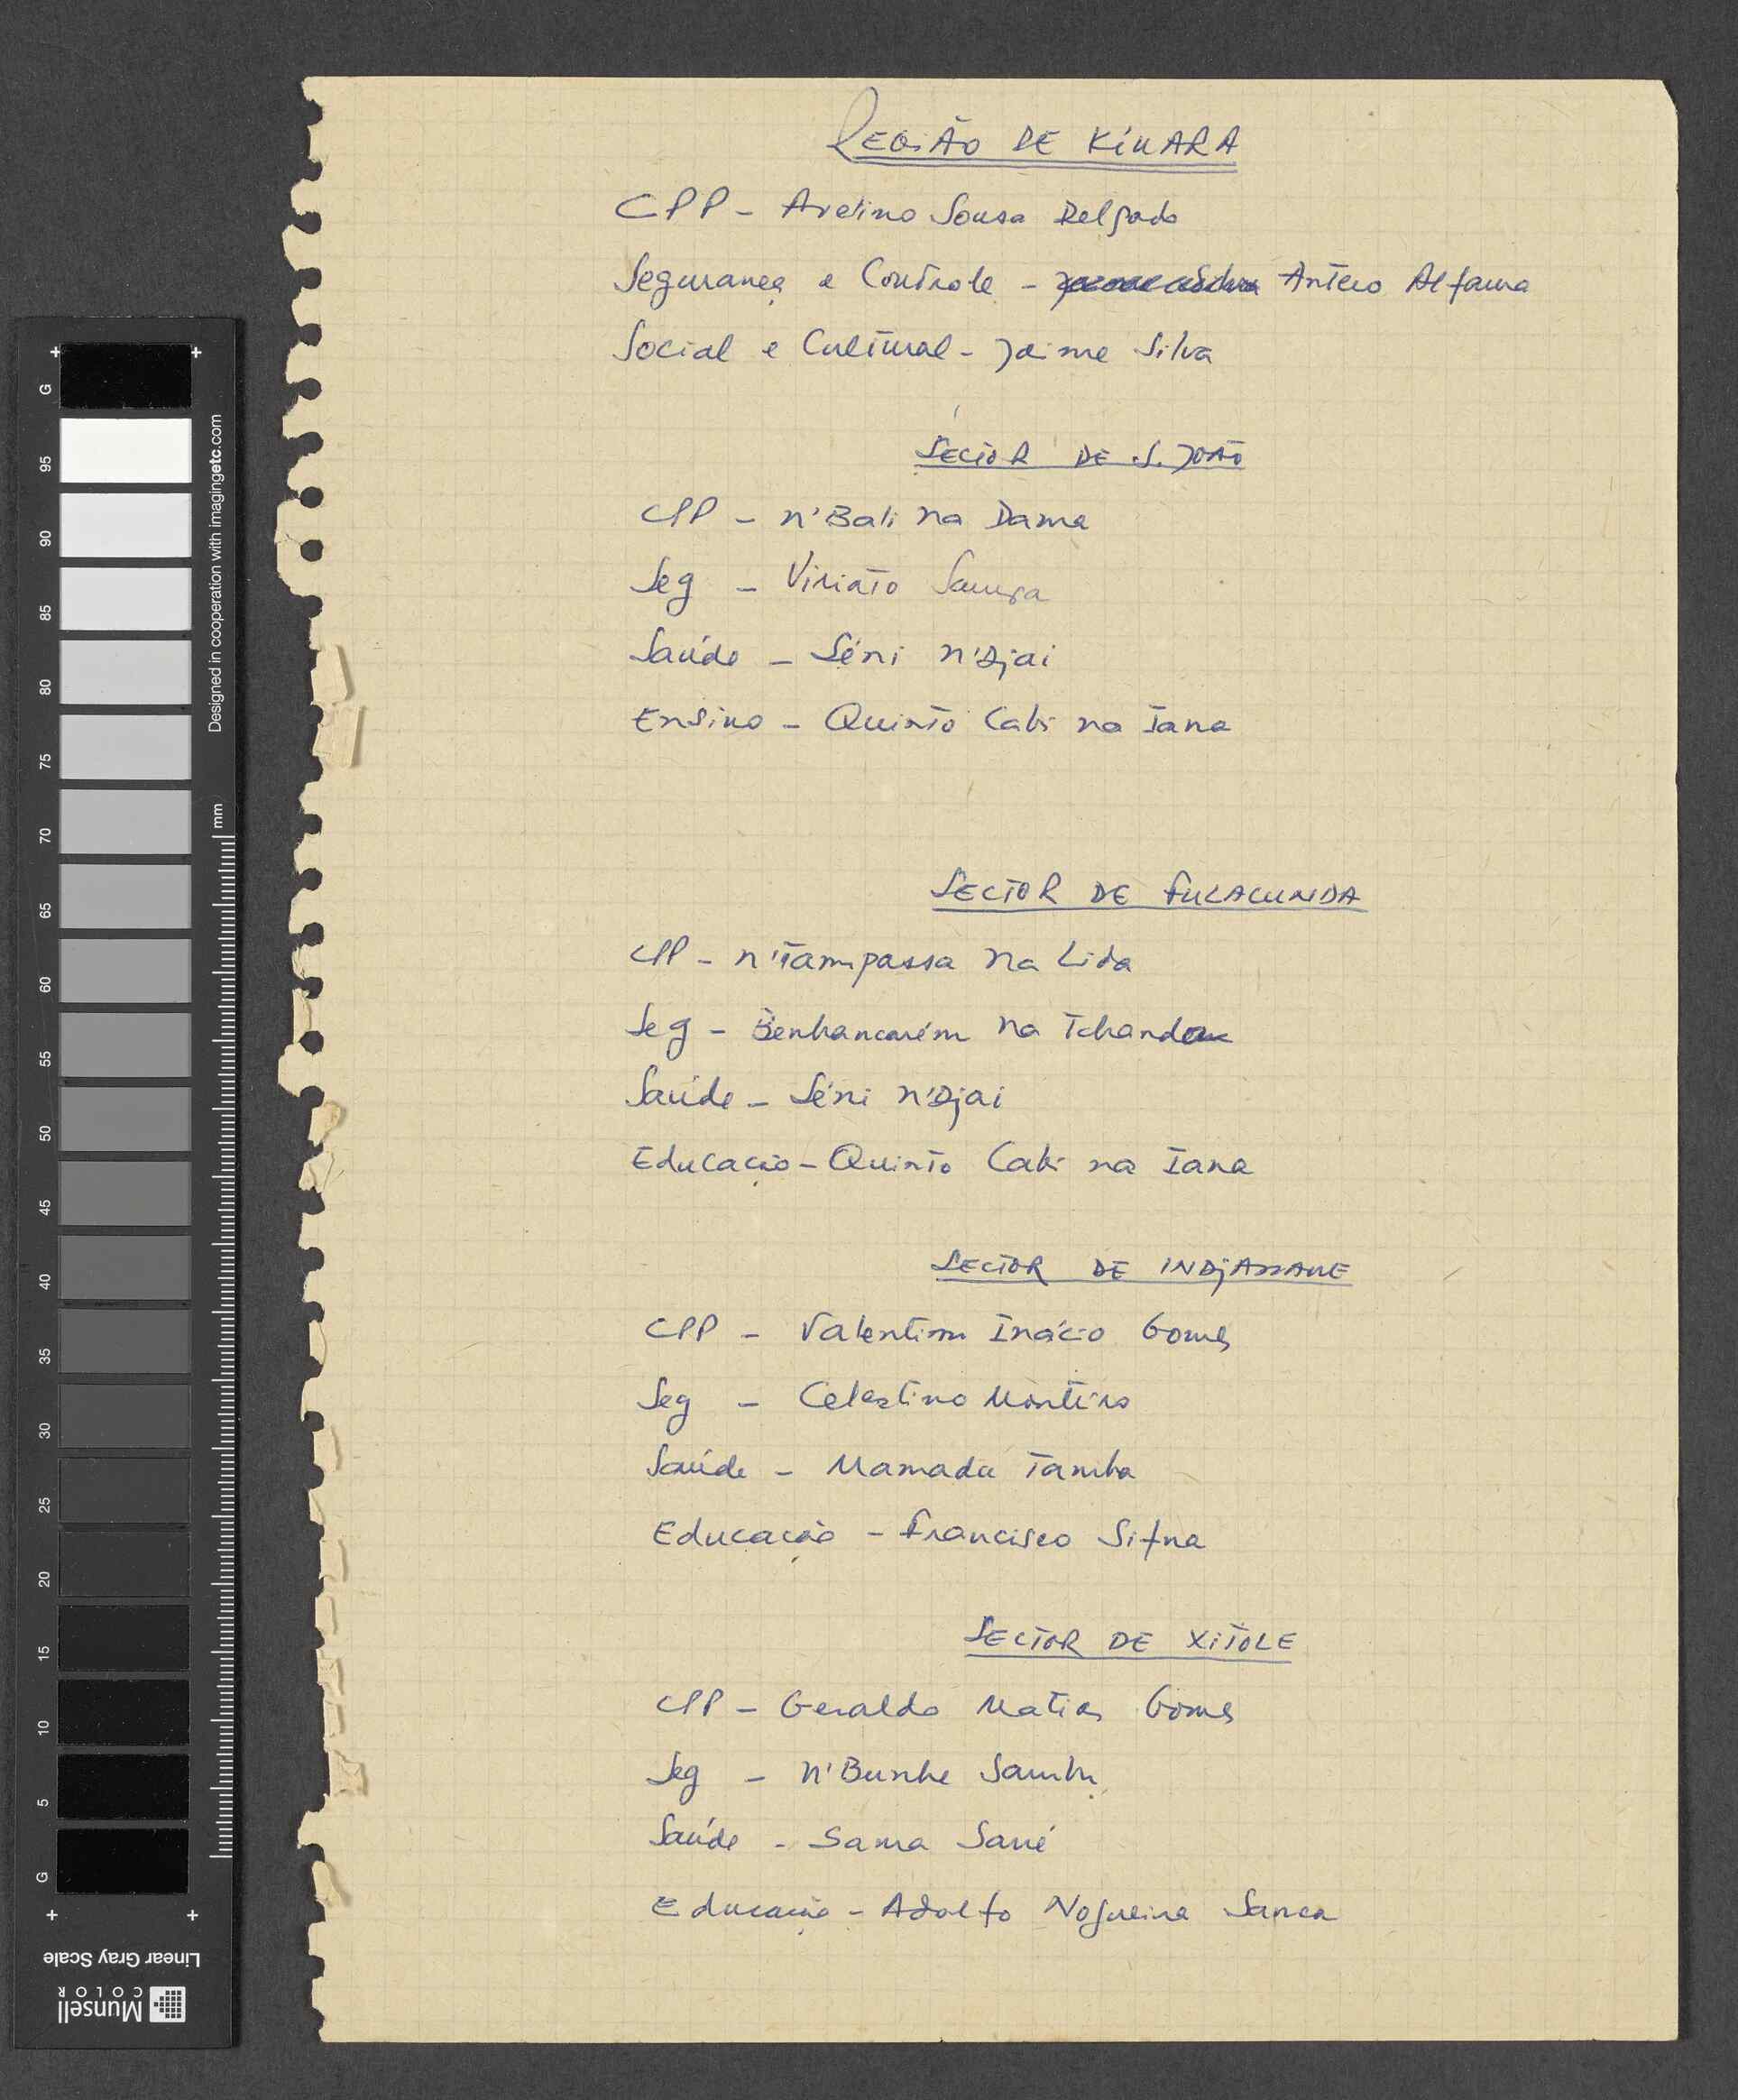 REGIÃO DE KINARA
CPP - Avelino Sousa Delgado
Segurança e Controle - Antero Alfama
Social e Cultural - Jaime Silva
SECTOR DE S. JOÃO
CPP - N'Bali na Dama
Seg - Viriato
Saúde - Séni N'Djai
Ensino - Quinto Cabi na Iana
SECTOR DE FULACUNDA
CPP - N'Tampassa Na Lida
Seg - Benhancarém Na
Saúde - Séni N'Djai
Educação - Quinto Cabi na Iana
SECTOR DE INDJASSANE
CPP - Valentim Inácio Gomes
Seg - Celestino Monteiro
Saúde - Mamadu Tamba
Educação - Francisco Sifna
SECTOR DE XITOLE
CPP - Geraldo Matias Gomes
Seg - N'Bunhe Sambu
Saúde - Sama Sané
Educação - Adolfo Nogueira Sanca
G
95
90
85
80
75
70
65
60
55
50
45
40
35
30
25
20
15
10
5
G
Designed in cooperation with imagingetc.com
mm
Linear Gray Scale
Munsell
COLOR